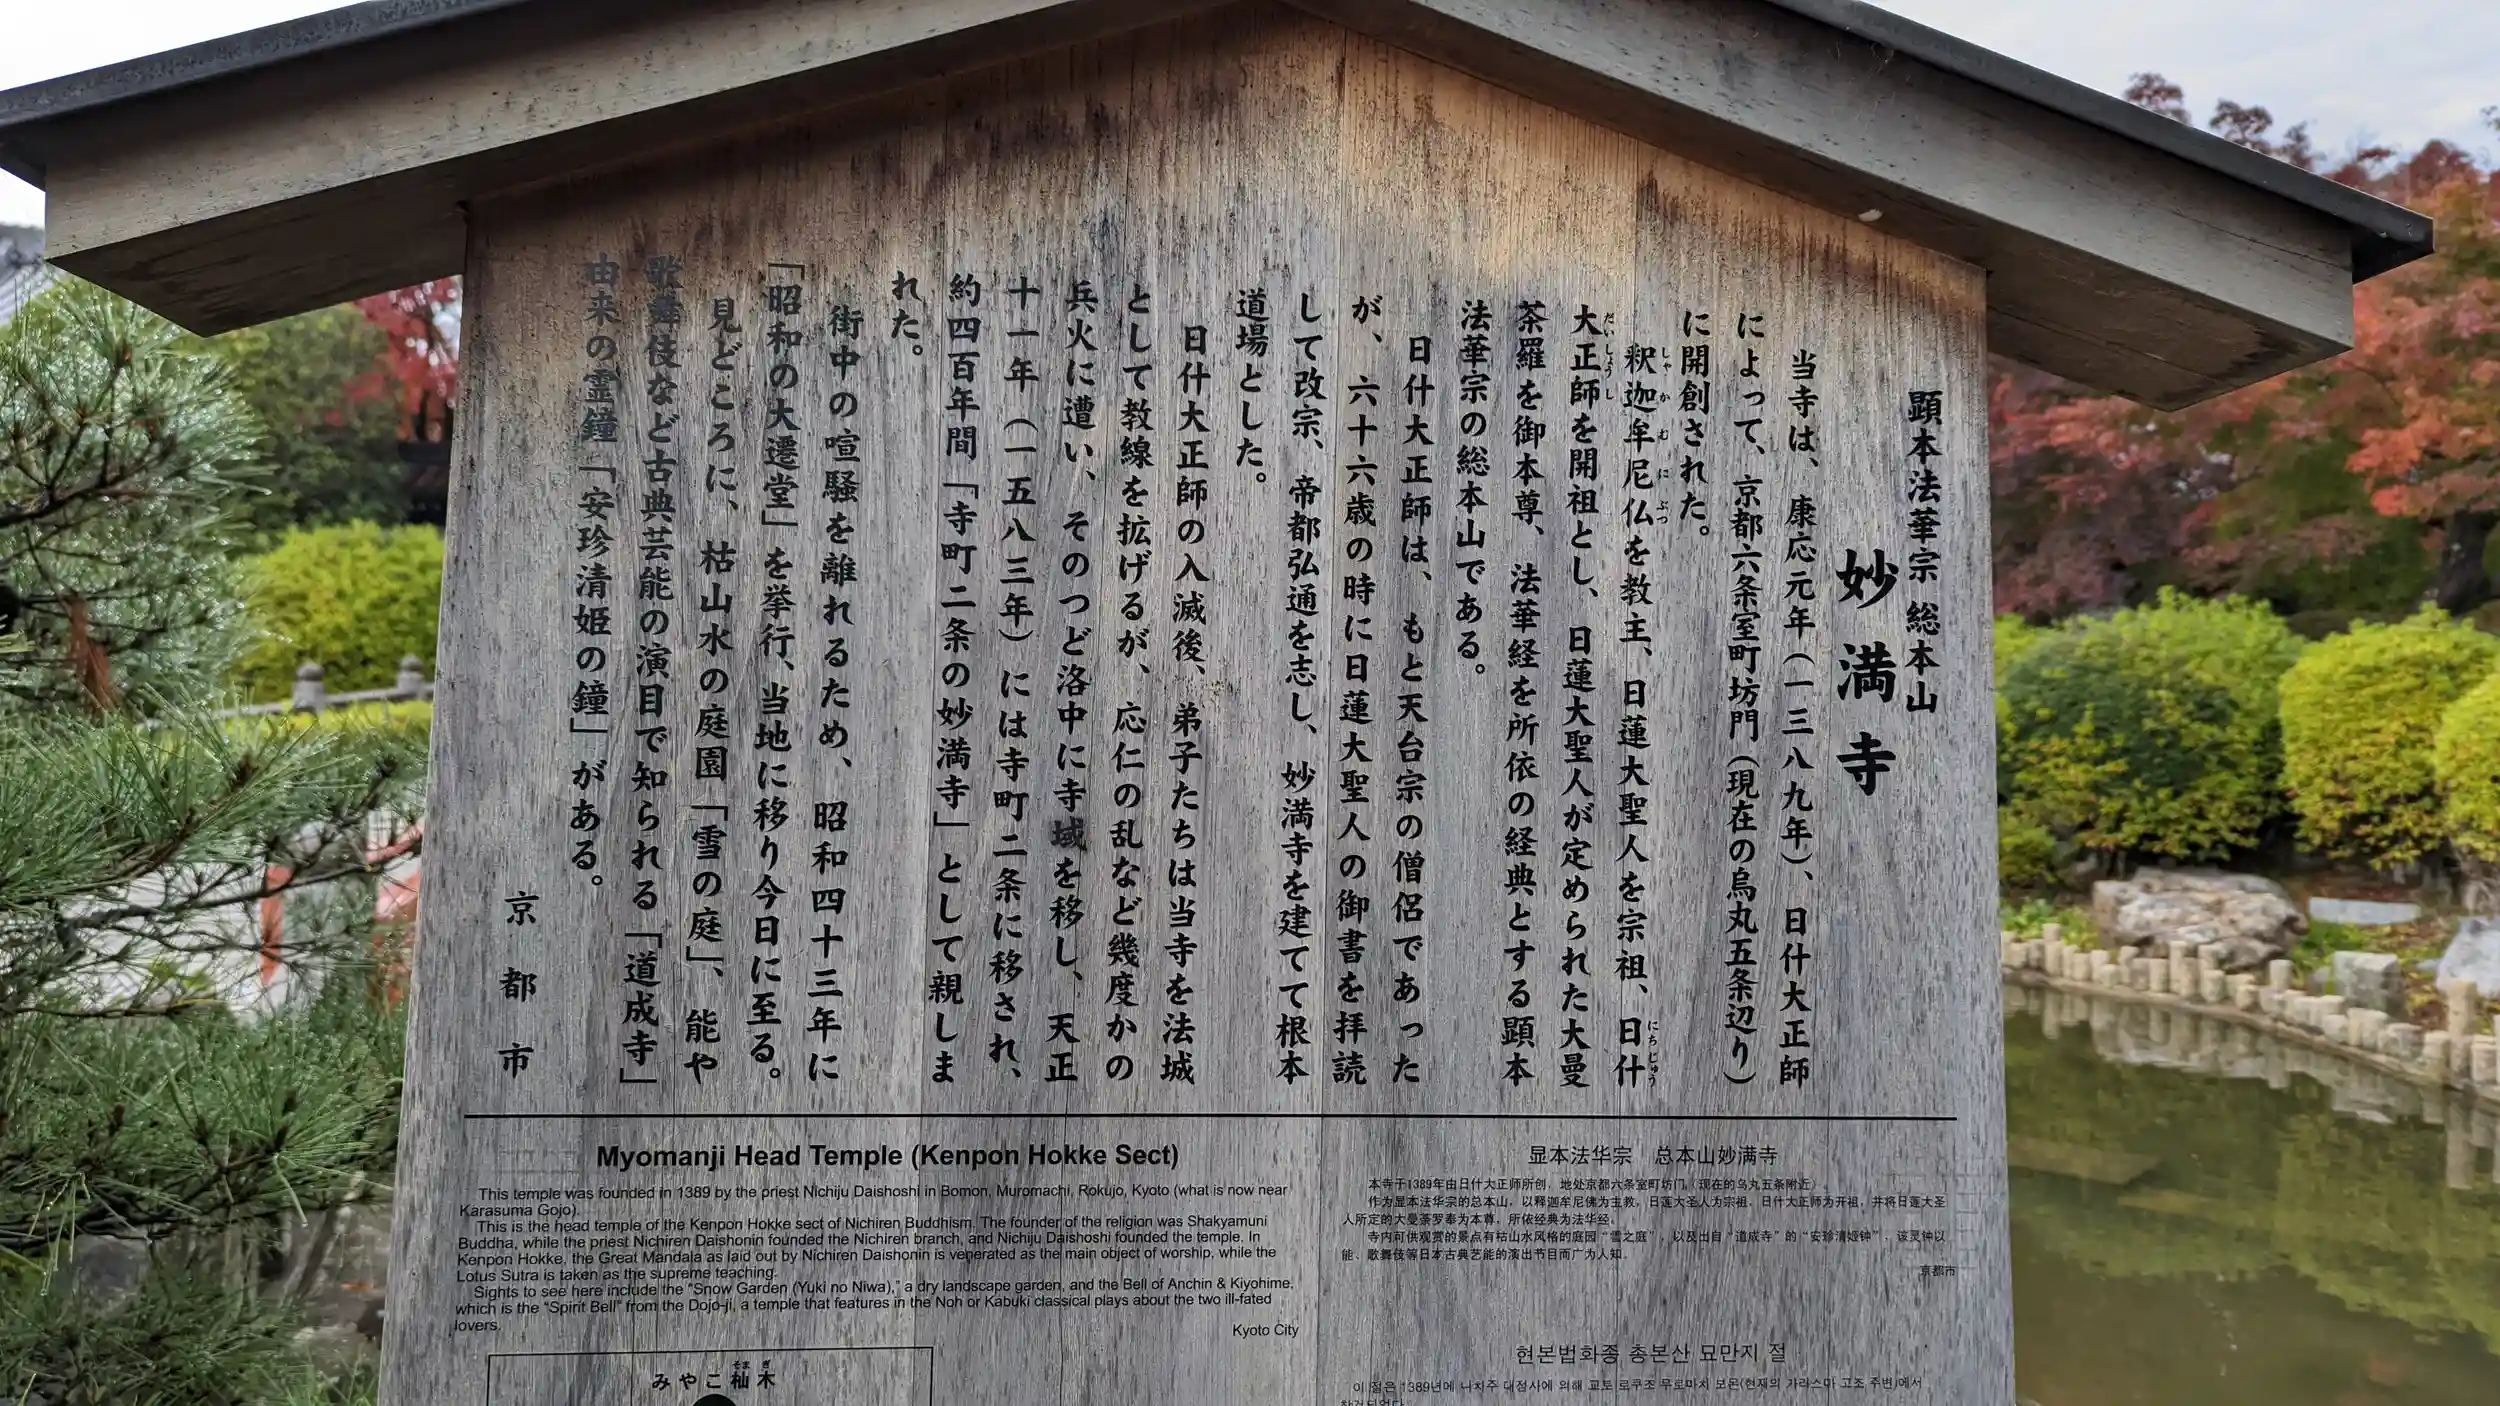 顕本法華宗 総本山
妙満寺
当寺は、康応元年(一三八九年)、日什大正師
によって、京都六条室町坊門(現在の烏丸五条辺り)
に開創された。
釈迦牟尼仏を教主、日蓮大聖人を宗祖、日什
しゃかむにぶつ
にちじゅう
大正師を開祖とし、日蓮大聖人が定められた大曼
だいしょうし
荼羅を御本尊、法華経を所依の経典とする顕本
法華宗の総本山である。
日什大正師は、もと天台宗の僧侶であった
が、六十六歳の時に日蓮大聖人の御書を拝読
して改宗、帝都弘通を志し、妙満寺を建てて根本
道場とした。
日什大正師の入滅後、弟子たちは当寺を法城
として教線を拡げるが、応仁の乱など幾度かの
兵火に遭い、そのつど洛中に寺域を移し、天正
十一年(一五八三年)には寺町二条に移され、
約四百年間「寺町二条の妙満寺」として親しま
れた。
街中の喧騒を離れるため、昭和四十三年に
「昭和の大遷堂」を挙行、当地に移り今日に至る。
見どころに、枯山水の庭園「雪の庭」、能や
歌舞伎など古典芸能の演目で知られる「道成寺」
由来の霊鐘「安珍清姫の鐘」がある。
京都市
Myomanji Head Temple (Kenpon Hokke Sect)
This temple was founded in 1389 by the priest Nichiju Daishoshi in Bomon, Muromachi, Rokujo, Kyoto (what is now near
Karasuma Gojo).
This is the head temple of the Kenpon Hokke sect of Nichiren Buddhism. The founder of the religion was Shakyamuni
Buddha, while the priest Nichiren Daishonin founded the Nichiren branch, and Nichiju Daishoshi founded the temple. In
Kenpon Hokke, the Great Mandala as laid out by Nichiren Daishonin is venerated as the main object of worship, while the
Lotus Sutra is taken as the supreme teaching.
Sights to see here include the "Snow Garden (Yuki no Niwa)," a dry landscape garden, and the Bell of Anchin & Kiyohime,
which is the "Spirit Bell" from the Dojo-ji, a temple that features in the Noh or Kabuki classical plays about the two ill-fated
lovers.
Kyoto City
显本法华宗 总本山妙满寺
本寺于1389年由日什大正师所创，地处京都六条室町坊门（现在的乌丸五条附近）。
作为显本法华宗的总本山，以释迦牟尼佛为主教，日莲大圣人为宗祖，日什大正师为开祖，并将日莲大圣
人所定的大曼荼罗奉为本尊，所依经典为法华经。
寺内可供观赏的景点有枯山水风格的庭园“雪之庭”，以及出自“道成寺”的“安珍清姬钟”，该灵钟以
能、歌舞伎等日本古典艺能的演出节目而广为人知。
京都市
현본법화종 총본산 묘만지 절
이 절은 1389년에 니치주 대정사에 의해 교토 로쿠조 무로마치 보몬(현재의 가라스마 고조 주변)에서
そま ぎ
みやこ杣木